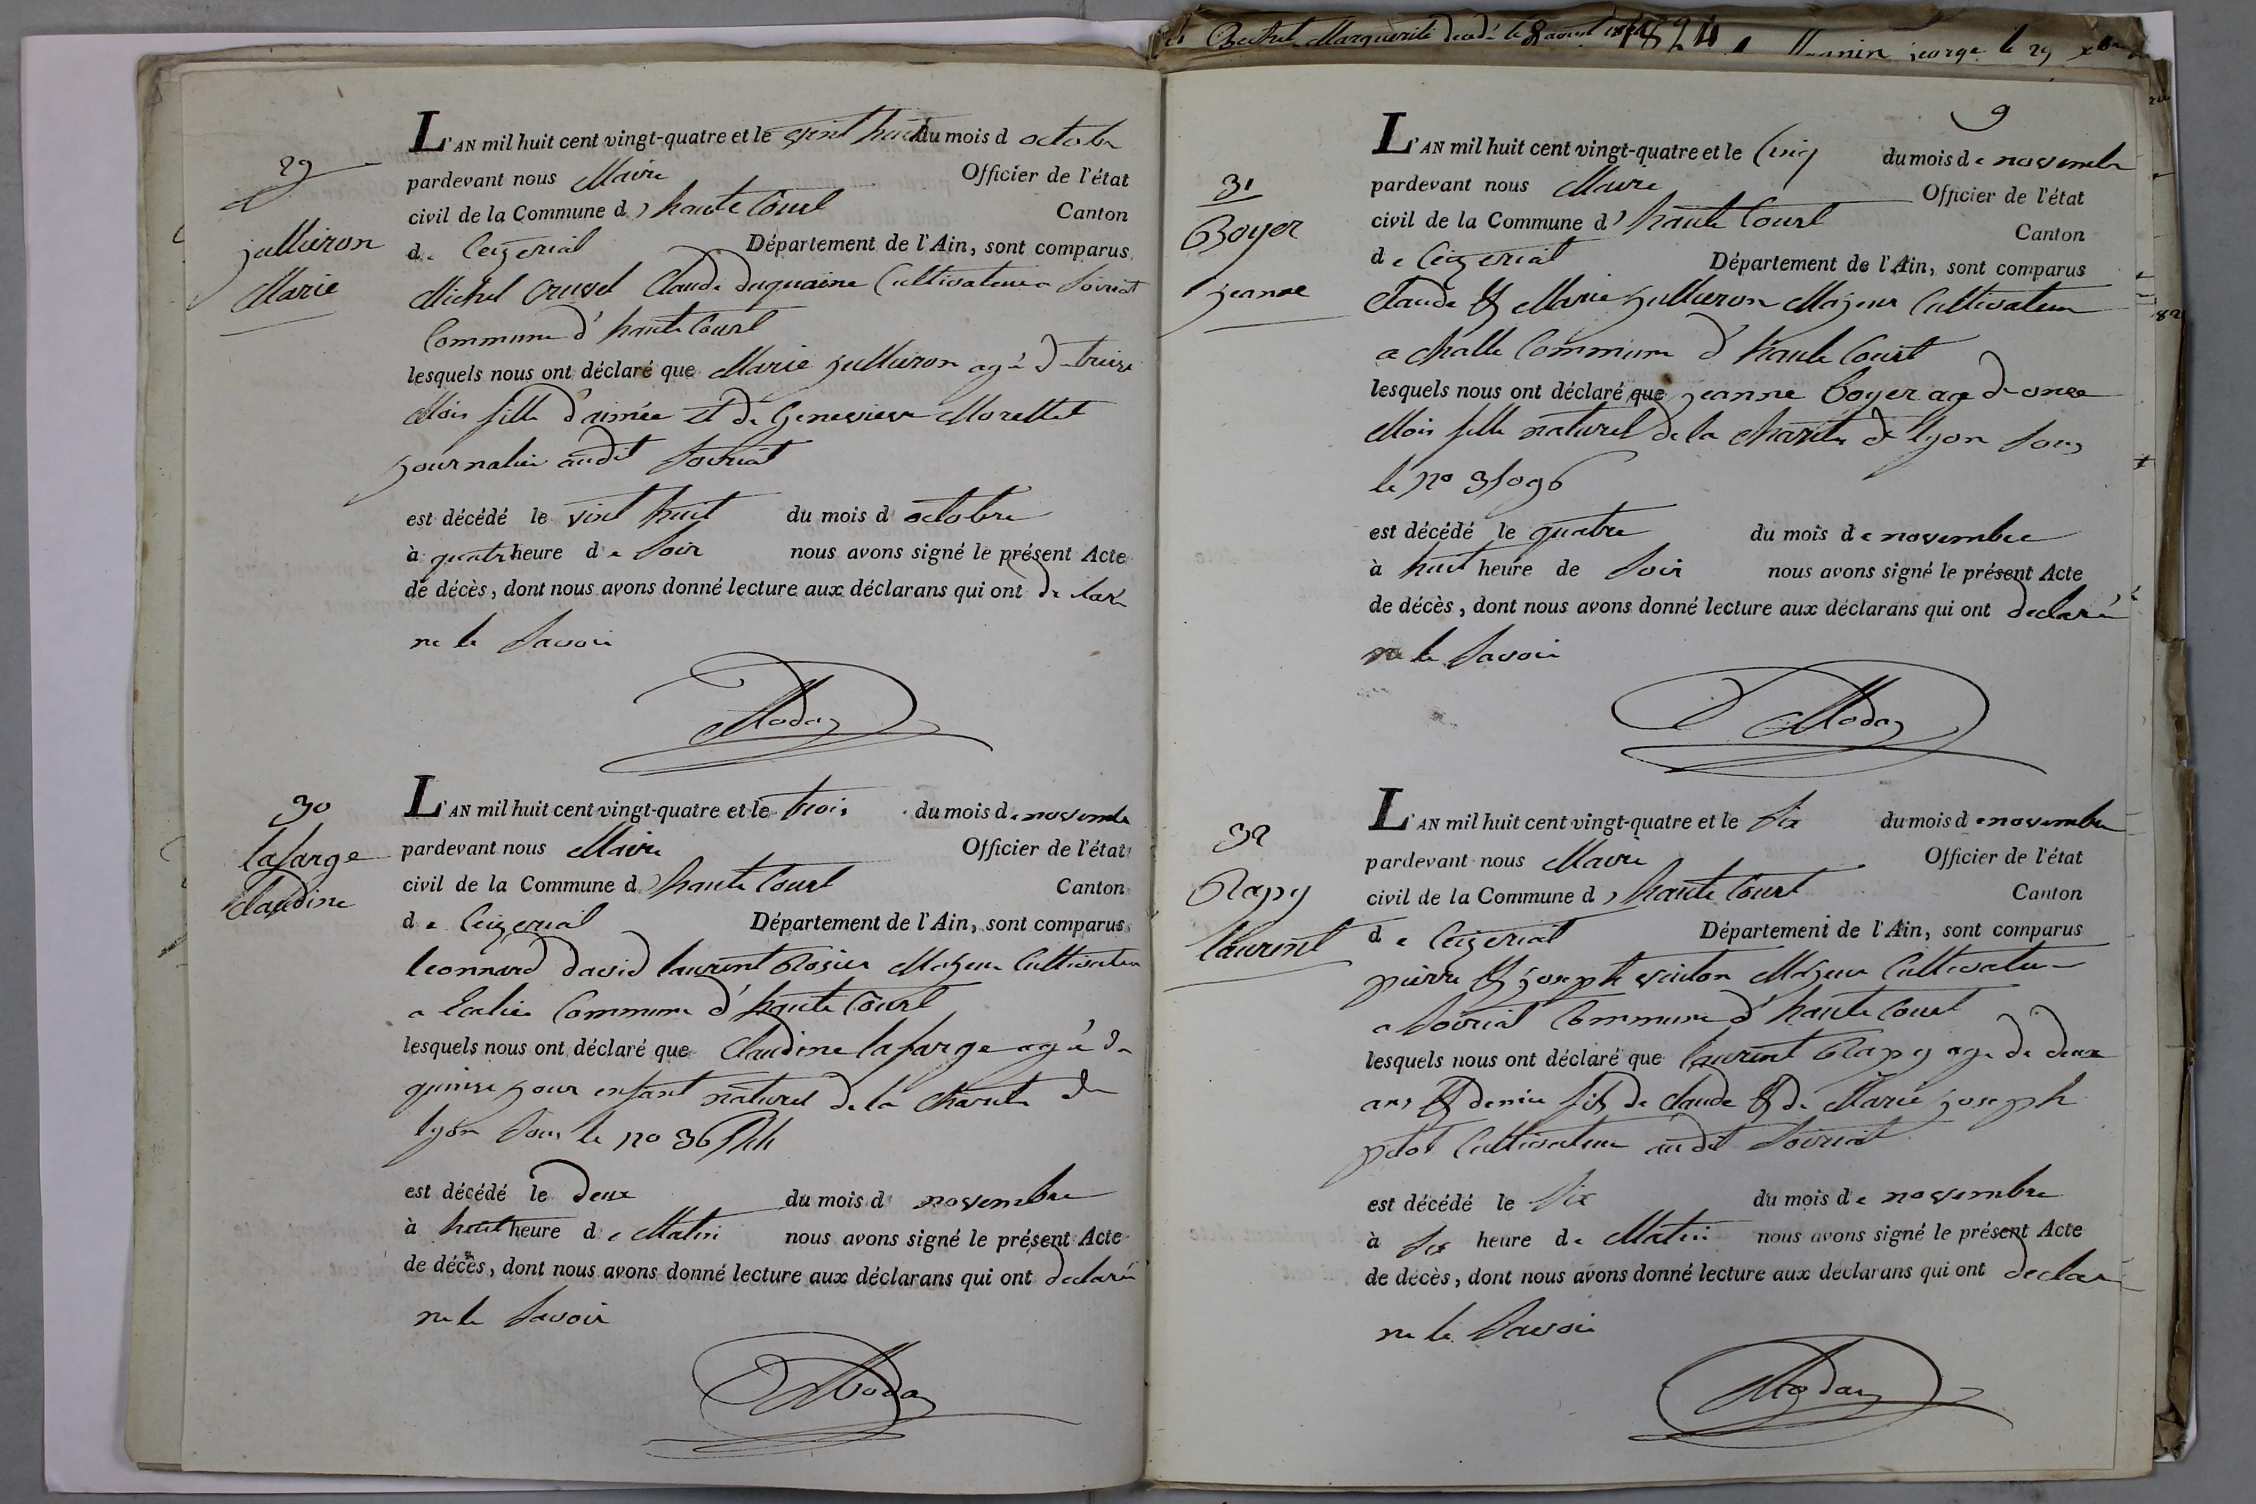 29
jullieron
Marie
L'AN mil huit cent vingt-quatre et le vint huit du mois d octobre
pardevant nous Maire Officier de l'état
civil de la Commune d' haute Court Canton
de Ceizeriat Département de l'Ain, sont comparus
Michel Cruvel Claude duquaine Cultivateur a Soiriat
Commune d' haute Court
lesquels nous ont déclaré que Marie jullieron agé de treise
Mois fille d'aimée et de Genevieve Morellet
journalier audit Soiriat
est décédé le vint huit du mois d octobre
à quatre heure de Soir nous avons signé le présent Acte
de décès, dont nous avons donné lecture aux déclarans qui ont declaré
ne le Savoir
Moday
30
lafarge
Claudine
L'AN mil huit cent vingt-quatre et le trois du mois de novembre
pardevant nous Maire Officier de l'état
civil de la Commune d' haute Court Canton
de Ceizeriat Département de l'Ain, sont comparus
leonnard david laurent Rosier Majeur Cultivateur
a Commune d' haute Court
lesquels nous ont déclaré que Claudine lafarge agé de
quinse jour enfant naturel de la Charite de
lyon Sous le no
est décédé le deux du mois d novembre
à huit heure de Matin nous avons signé le présent Acte
de décès, dont nous avons donné lecture aux déclarans qui ont declaré
ne le Savoir
Moday
Marguerite 1824 george le 29
9
31
Boyer
jeanne
L'AN mil huit cent vingt-quatre et le Cinq du mois de novembre
pardevant nous Maire Officier de l'état
civil de la Commune d' haute Court Canton
de Ceizeriat Département de l'Ain, sont comparus
Claude & Marie jullieron Majeur Cultivateur
a Challe Commune d' haute Court
lesquels nous ont déclaré que jeanne boyer age de onse
Mois fille naturel de la Charite de lyon Sous
le no 31096
est décédé le quatre du mois de novembre
à huit heure de Soir nous avons signé le présent Acte
de décès, dont nous avons donné lecture aux déclarans qui ont declaré
ne le Savoir
Moday
32
Rapy
laurent
L'AN mil huit cent vingt-quatre et le Six du mois de novembre
pardevant nous Maire Officier de l'état
civil de la Commune d' haute Court Canton
de Ceizeriat Département de l'Ain, sont comparus
pierre & joseph vuiton Majeur Cultivateur
a Soiriat Commune d' haute Court
lesquels nous ont déclaré que laurent Rapy age de deux
ans & demie fils de Claude & de Marie joseph
pitot Cultivateur audit Soiriat
est décédé le Six du mois de novembre
à Six heure de Matin nous avons signé le présent Acte
de décès, dont nous avons donné lecture aux déclarans qui ont declaré
ne le Savoir
Moday